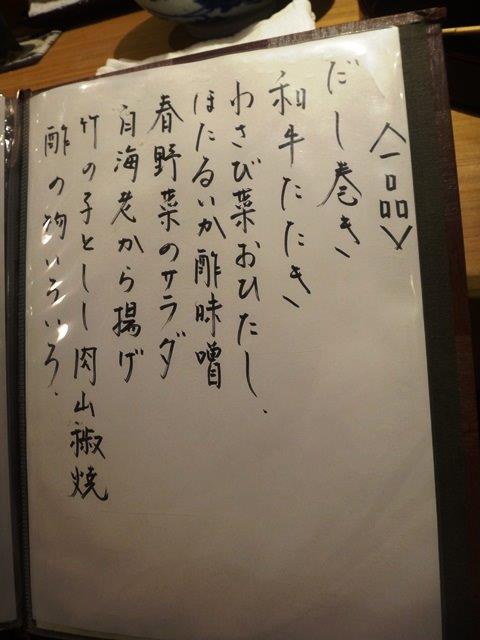 〈一品〉
だし巻き
和牛たたき
わさび菜おひたし
ほたるいか酢味噌
春野菜のサラダ
白海老から揚げ
竹の子としし肉山椒焼
酢の物いろいろ